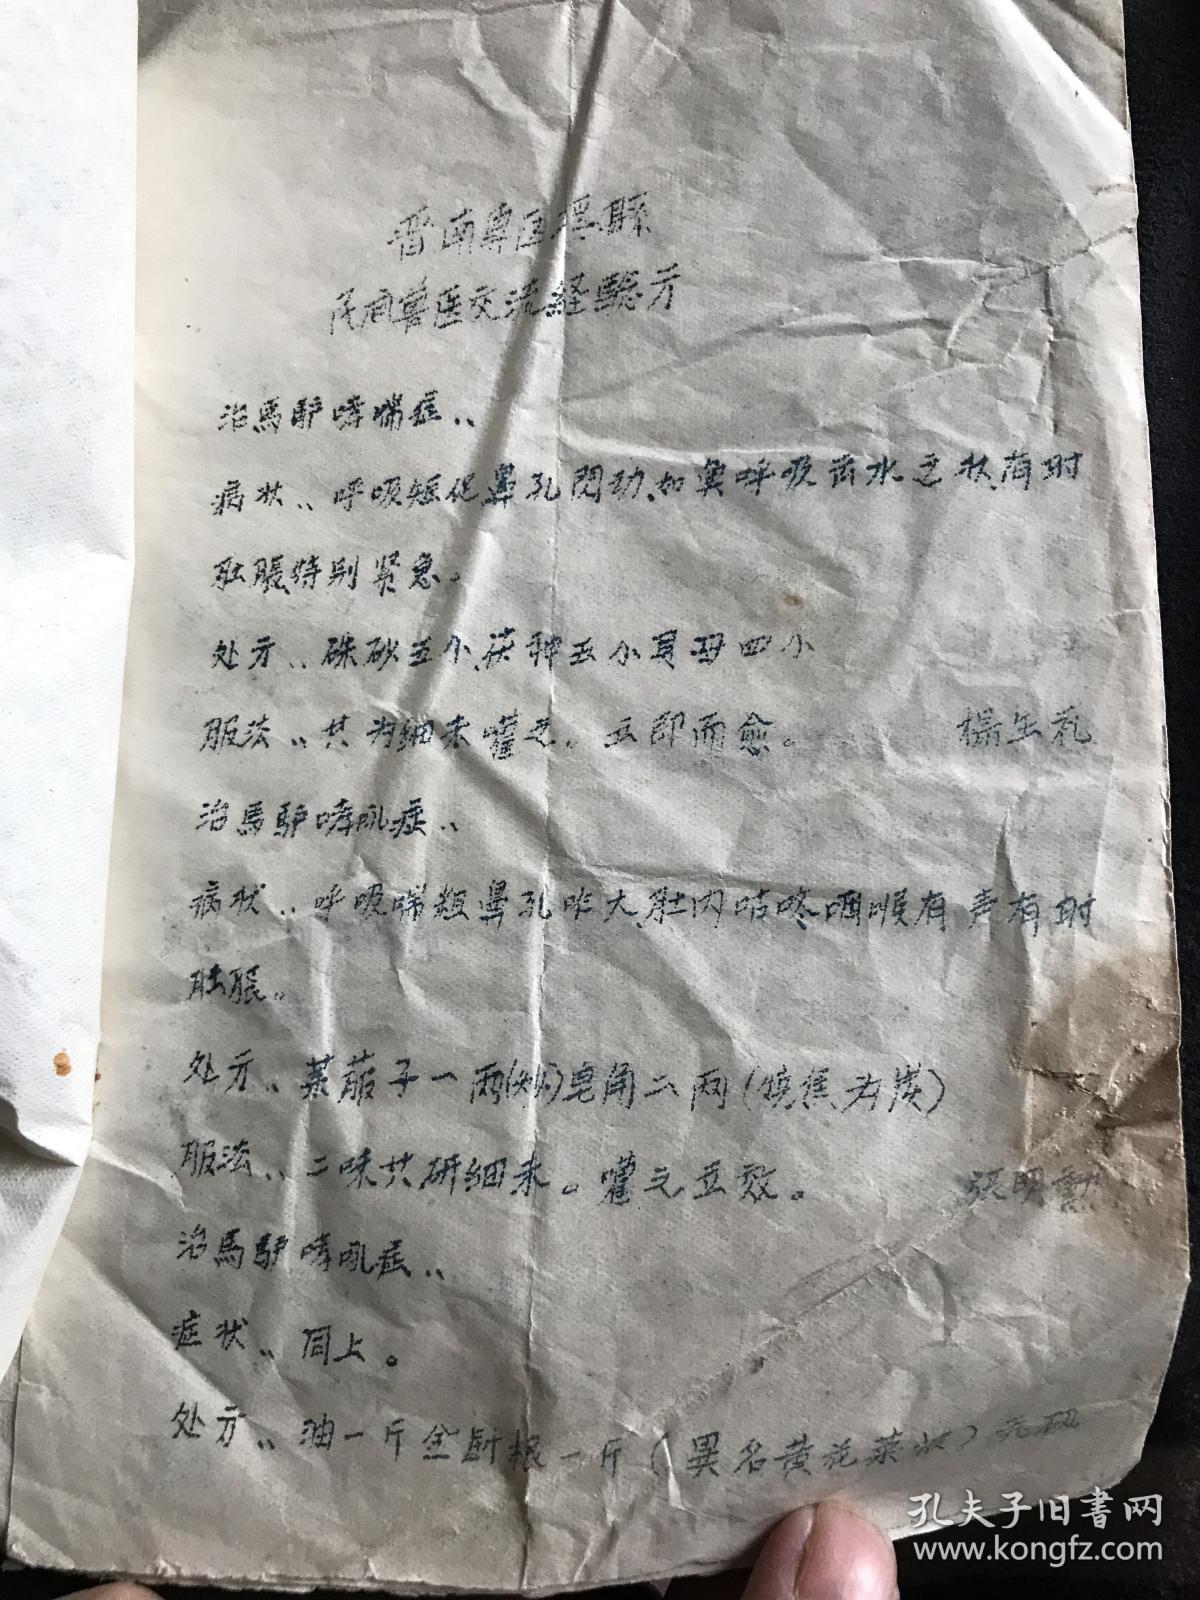 晋南专区隰縣
民间兽医交流经驗方
治馬驴哮喘症、、
病状、、呼吸短促鼻孔閃动、如鱼呼吸出水之状、有时
肚脹特别紧急。
处方、、硃砂五个、茯神五个貝母四个
服法、、共为细末灌之。立即而愈。 楊生礼
治馬驴哮吼症、、
病状、、呼吸喘粗鼻孔咋大、肚内咕咚咽喉有声有时
肚脹。
处方、、莱菔子一两(炒)皂角二两(烧焦为炭)
服法、、二味共研细末。灌之立效。 張明勲
治馬驴哮吼症、、
症状、、同上。
处方、、油一斤金針根一斤(異名黄花菜
孔夫子旧書网
www.kongfz.com